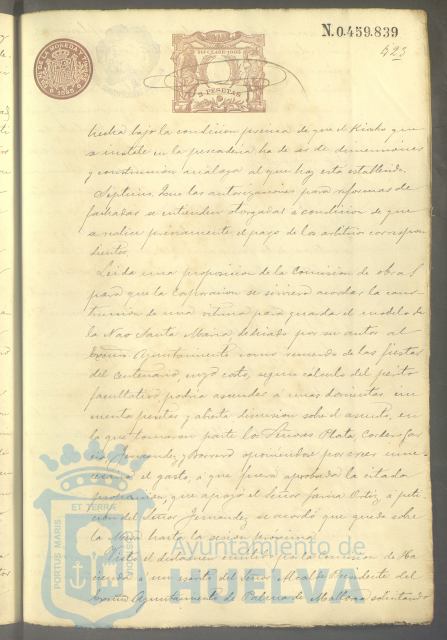 N.0.459.839
423
MONEDA Y TIMBRE
1893
3 PESETAS
hecha bajo la condicion precisa de que el Kiosko que
se instale en la pescaderia ha de ser de dimensiones
y construccion análoga al que hoy está establecido.
Septimo. Que las autorizaciones para reformas de
fachadas se entienden otorgadas a condicion de que
se realice previamente el pago de los arbitrios correspon
dientes.
Leida una proposicion de la Comision de obras
para que la Corporacion se sirviera acordar la cons-
truccion de una vitrina para guardar el modelo de
la Nao Santa Maria, dedicado por su autor al
Excmo Ayuntamiento como recuerdo de las fiestas
del Centenario, cuyo costo, segun calculo del perito
facultativo, podria ascender a unas doscientas cin
cuenta pesetas y abierta discusion sobre el asunto, en
la que tomaron parte los Señores Plata, Cordero
Fernandez y Borrero oponiendose por creer inne-
cesario el gasto, a que fuera aprobada la citada
proposicion, que apoyó el Señor Garcia Ortiz, á peti-
cion del Señor Fernandez se acordó que quede sobre
la Mesa hasta la sesion próxima.
Visto el dictamen emitido por la Comision de Ha
cienda á un escrito del Señor Alcalde Presidente del
Excmo Ayuntamiento de Palma de Mallorca solicitando
ET TERRA
PORTUS MARIS
Ayuntamiento de
HUELVA